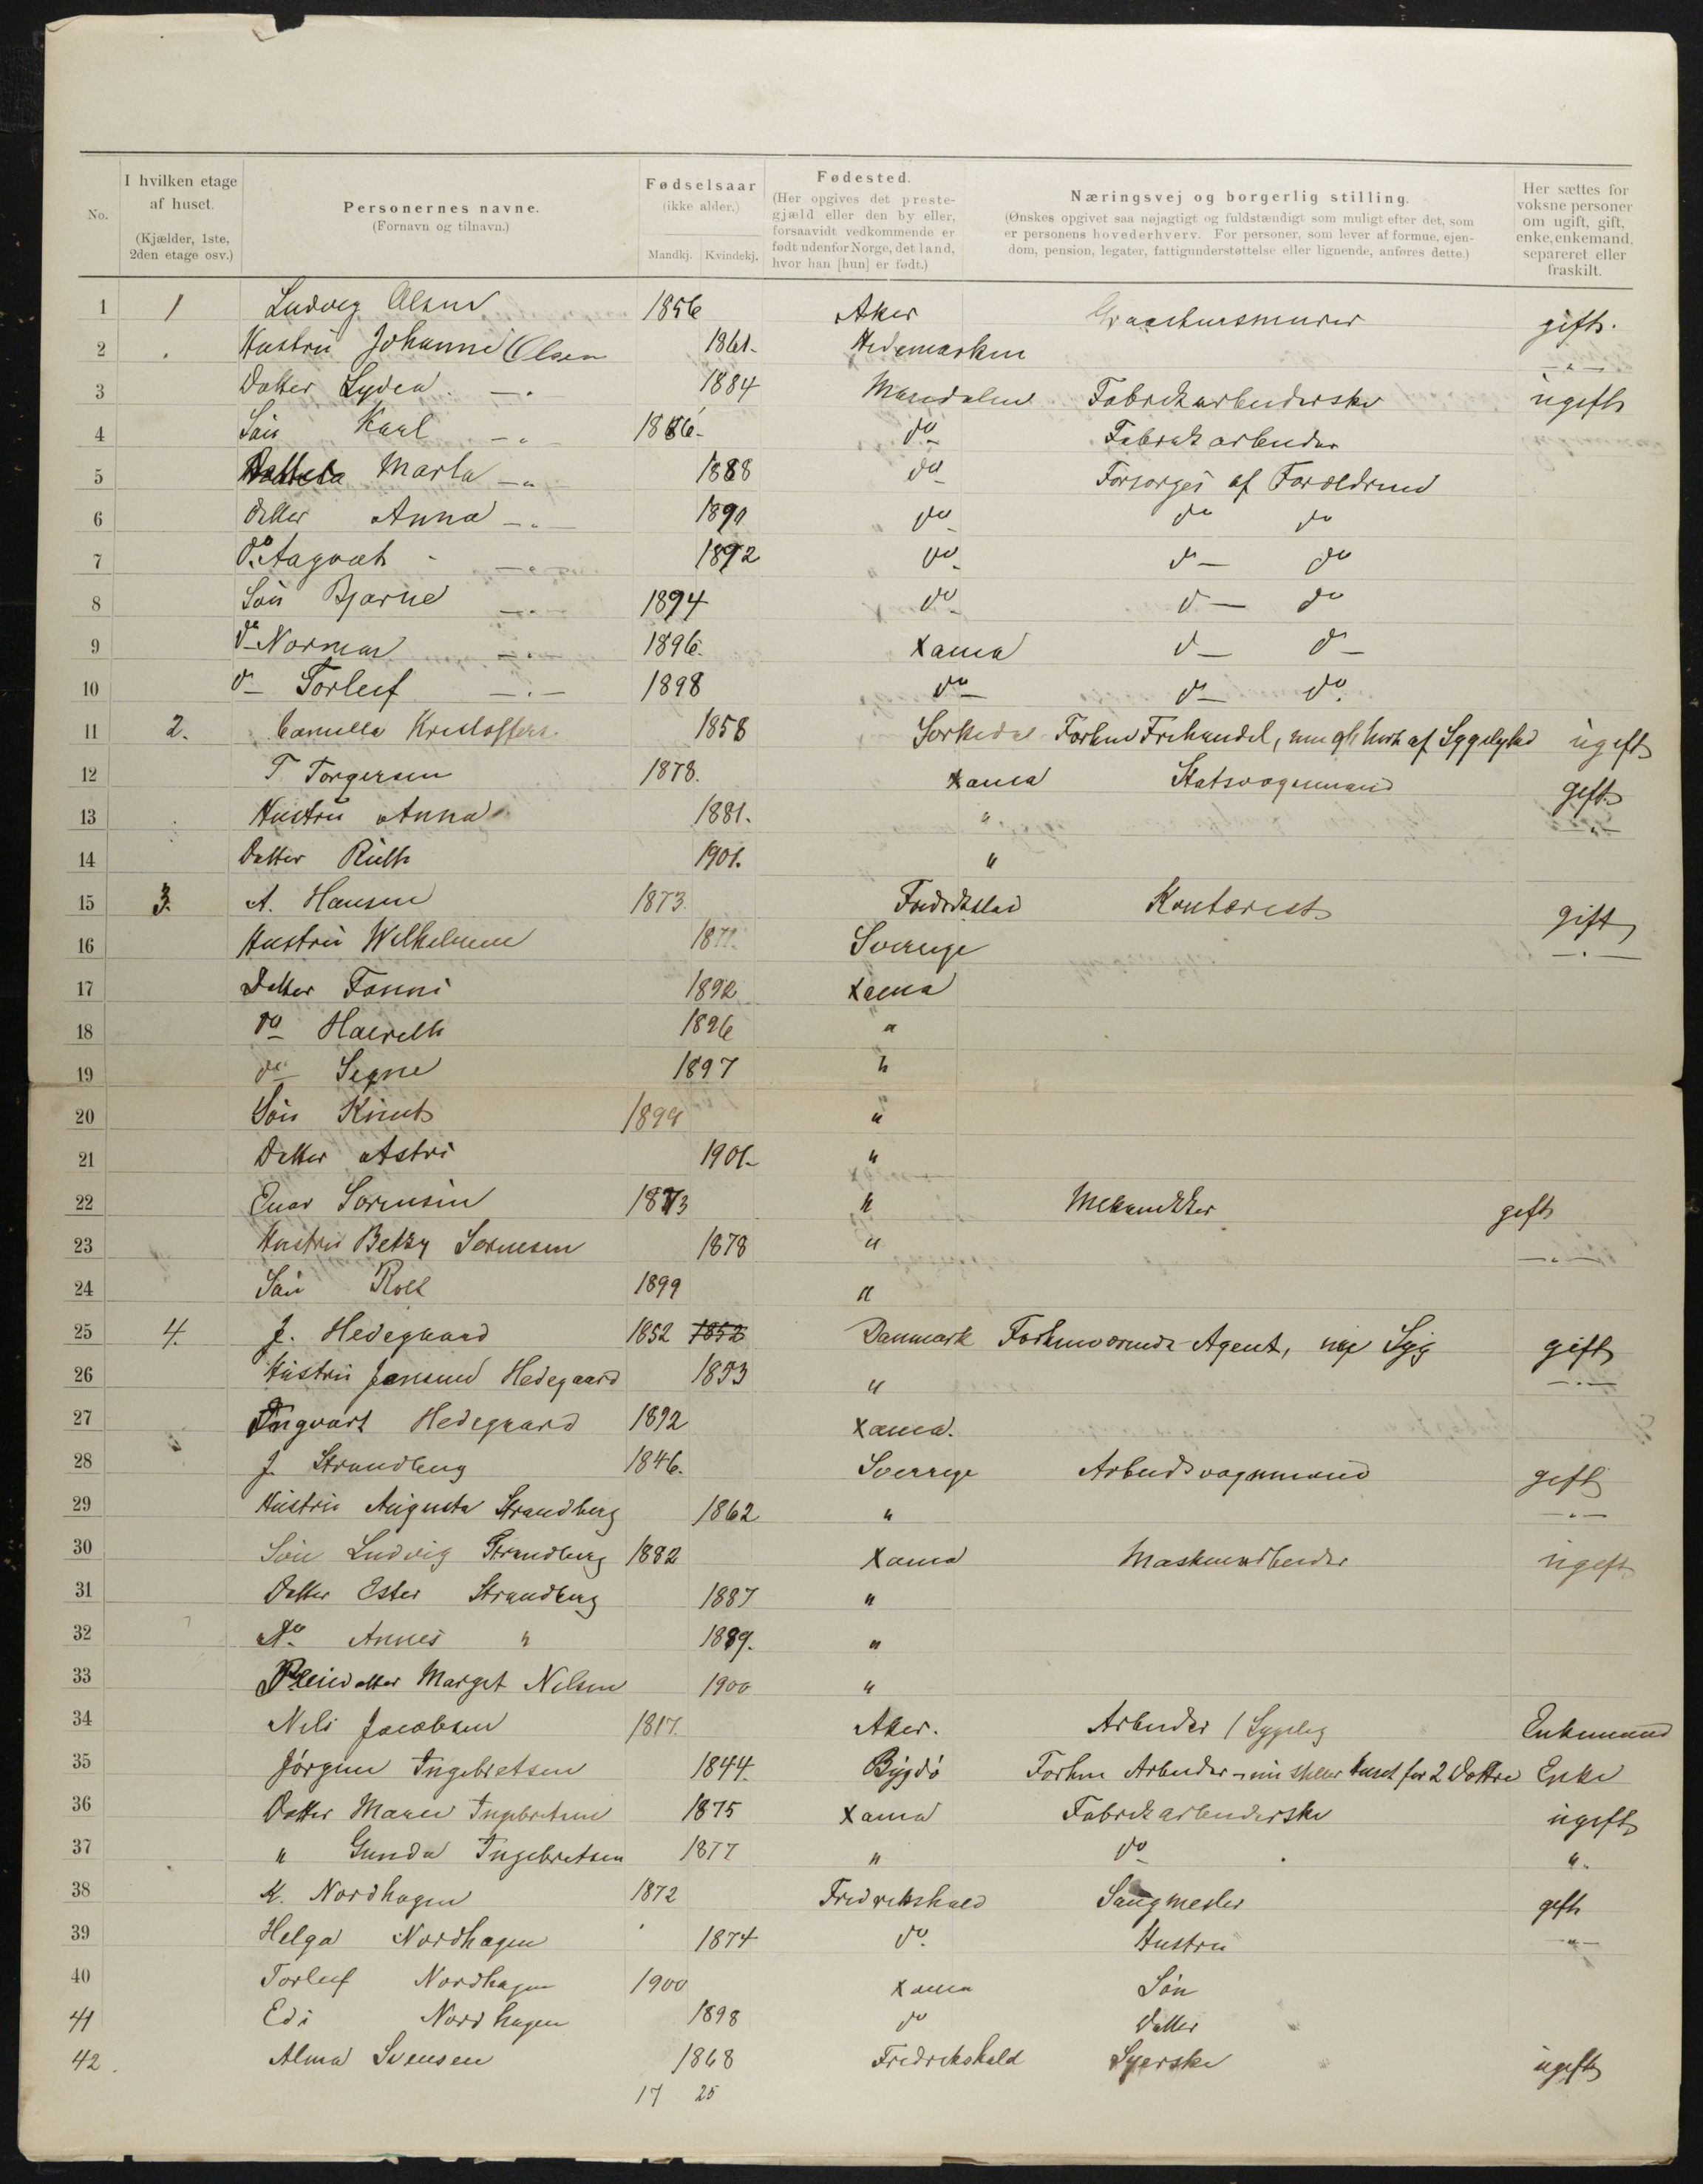 No.
I hvilken etage
af huset.
(Kjælder, 1ste,
2den etage osv.)
Personernes navne.
(Fornavn og tilnavn.)
Fødselsaar
(ikke alder.)
Mandkj. Kvindekj.
Fødested.
(Her opgives det preste-
gjæld eller den by eller,
forsaavidt vedkommende er
født udenfor Norge, det land,
hvor han [hun] er født.)
Næringsvej og borgerlig stilling.
(Ønskes opgivet saa nøjagtigt og fuldstændigt som muligt efter det, som
er personens hovederhverv. For personer, som lever af formue, ejen-
dom, pension, legater, fattigunderstøttelse eller lignende, anføres dette.)
Her sættes for
voksne personer
om ugift, gift,
enke, enkemand,
separeret eller
fraskilt.
1 1 Ludvig Olsen 1856 Aker gift.
2 Hustru Johanne Olsen 1861. Hedemarken -"-
3 Datter Lydea -"- 1884 Fabrikarbeiderske ugift
4 Søn Karl -"- 1886 do Fabrikarbeider
5 Marta -"- 1888 do Forsørges af Forældrene
6 Datter Anna -"- 1890 do do do
7 do Aagoot -"- 1892 do do do
8 Søn Bjarne -"- 1894 do do do
9 do Norman -"- 1896. Xania do do
10 do Torleif -"- 1898 do do do
11 2. Camilla Kristoffers. 1858 Sørkedal ugift
12 T. Torgersen 1878. Xania gift
13 Hustru Anna 1881. " -"-
14 Datter Ruth 1901. "
15 3. A. Hansen 1873. Fredrikstad Kontorist gift
16 Hustru Wilhelmine Sverrige -"-
17 Datter Fanni 1892 Xania
18 do 1896 "
19 do Signe 1897 "
20 Søn Knut 1899 "
21 Datter Astri 1901 "
22 Einar Sørensen 1873 " Mekaniker gift
23 Hustru Betzy Sørensen 1878 " -"-
24 Søn Rolf 1899 "
25 4. J. Hedegaard 1852 1852 Danmark Forhenværende Agent, nu Syg gift
26 Hustru Jensine Hedegaard 1853 " -"-
27 Ingvart Hedegaard 1892 Xania.
28 J. Strandberg 1846. Sverrige Arbeidsvognmand gift
29 Hustru Augusta Strandberg 1862 " -"-
30 Søn Ludvig Strandberg 1882 Xania Maskinarbeider ugift
31 Datter Ester Strandberg 1887 "
32 Do Annes " 1889. "
33 Pleiedatter Margit Nilsen 1900 "
34 Nils Jacobsen 1817. Aker. Arbeider Enkemand
35 Jørgine Ingebretsen 1844. Bygdø Forhen Arbeider - nu steller huset for 2 Døttre Enke
36 Datter Maren Ingebretsen 1875 Xania Fabrikarbeiderske ugift
37 " Gunda Ingebretsen 1877 " do ".
38 K. Nordhagen 1872 Fredrikshald Saugmester gift
39 Helga Nordhagen 1874 do Hustru -"-
40 Torleif Nordhagen 1900 Xania Søn
41 Edi Nordhagen 1898 do Datter
42. Alma Svensen 1868 Fredrikshald Syerske ugift
17 25